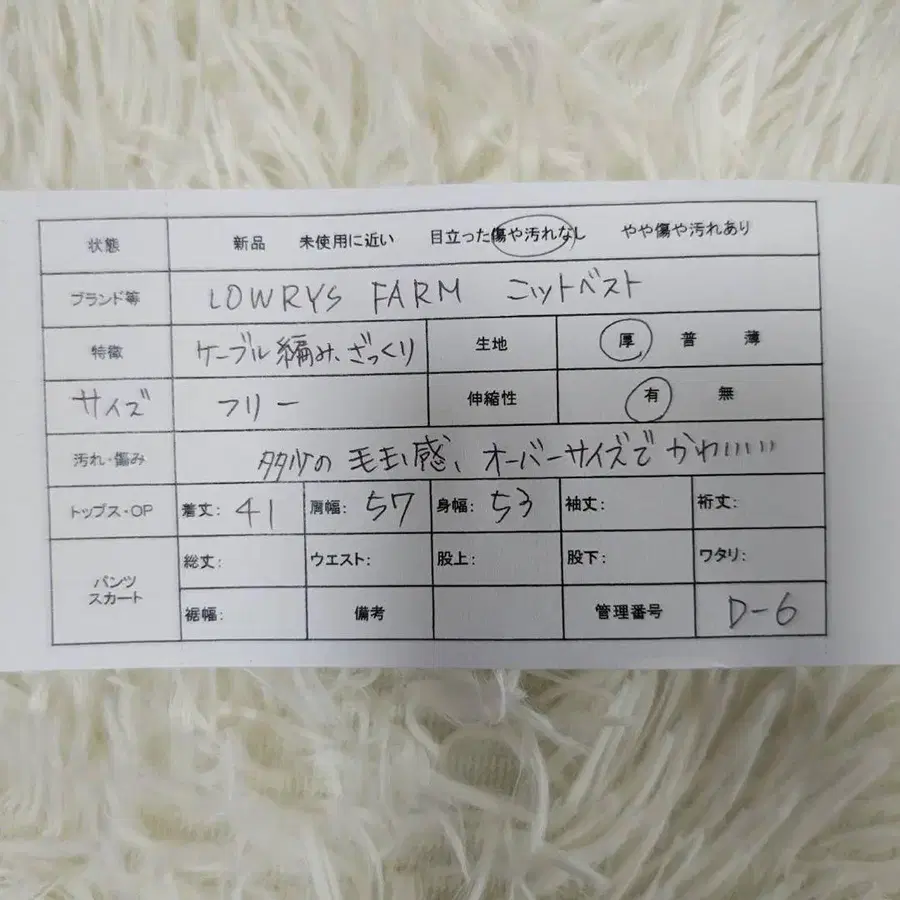 状態 新品 未使用に近い 目立った傷や汚れなし やや傷や汚れあり
ブランド等 LOWRYS FARM ニットベスト
特徴 ケーブル編み、ざっくり 生地 厚 普 薄
サイズ フリー 伸縮性 有 無
汚れ・傷み 多少の毛玉感、オーバーサイズでかわいいい
トップス・OP 着丈: 41 肩幅: 57 身幅: 53 袖丈: 裄丈:
パンツ スカート 総丈: ウエスト: 股上: 股下: ワタリ:
裾幅: 備考 管理番号 D-6